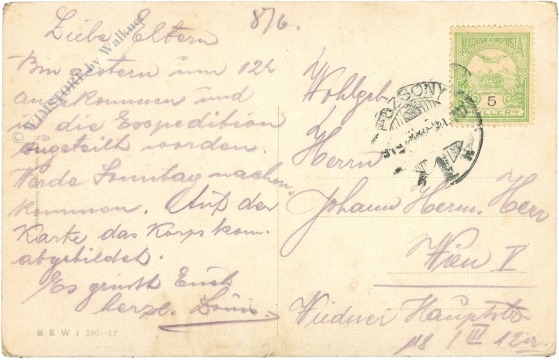 8/6.
Liebe Eltern
Bin gestern um 12h
angekommen und
in die Exspedition
zugeteilt worden.
Werde Sonntag nachen
kommen. Auf der
Karte das Korpskom.
abgebildet.
Es grüsst Euch
herzl. Louis
M.K.W.I 396-12
© WIMSTORE by Walkner
MAGYAR KIR. POSTA
5
FILLÉR
POZSONY
Wohlgeb
Herrn
Johann Herm. Herr
Wien V
Wiedner Hauptstr
118 / III 12a